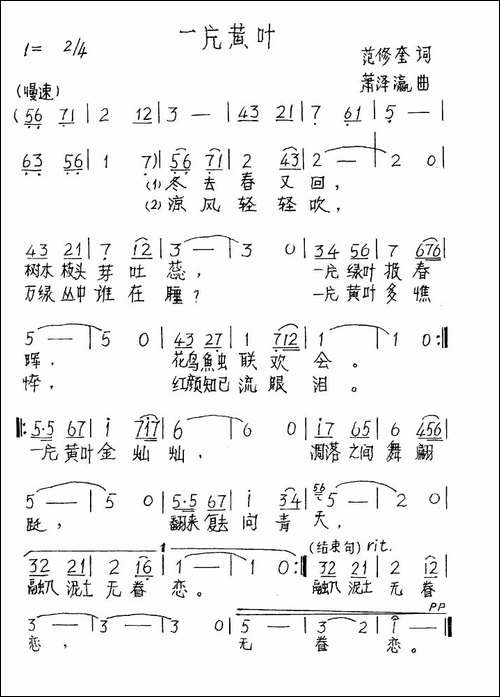 一片黄叶
1= 2/4
范修奎 词
萧泽瀛 曲
(慢速)
(56 71 | 2 12 | 3 — | 43 21 | 7 61 | 5 — |
63 56 | 1 7) | 56 71 | 2 43 | 2 — | 2 0 |
(1) 冬去春又回,
(2) 凉风轻轻吹,
43 21 | 7 12 | 3 — | 3 0 | 34 56 | 7 676 |
树木枝头芽吐蕊, 一片绿叶报春
万绿丛中谁在睡? 一片黄叶多憔
5 — | 5 0 | 43 27 | 1 712 | 1 — | 1 0 :||
晖, 花鸟鱼虫联欢会。
悴, 红颜知已流眼泪。
||: 5·5 67 | i 717 | 6 — | 6 0 | i7 65 | 6 456 |
一片黄叶金灿灿, 凋落之间舞翩
5 — | 5 0 | 5·5 67 | i 34 | 56 5 — | 2 0 |
跹, 翻来复去向青天,
1 (结束句) rit.
32 21 | 2 16 | 1 — | 1 0 :|| 32 21 | 2 12 |
融入泥土无眷恋。 融入泥土无眷
PP
3 — | 3 — | 3 0 | 5 — | 3 2 | i — ||
恋, 无眷恋。